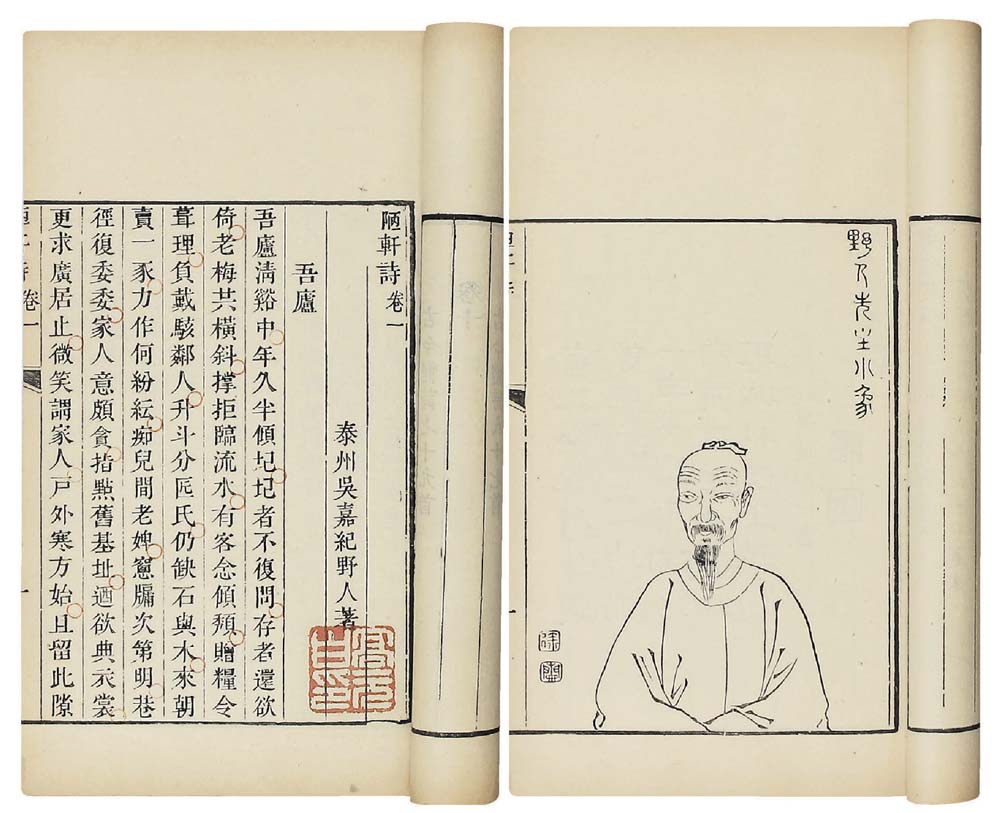 野人先生小象
陋軒詩 卷一
泰州吳嘉紀野人著
吾廬
吾廬淸谿中年久半傾圮圮者不復問存者還欲
倚老梅共橫斜撐拒臨流水有客念傾頹贈糧令
葺理負戴駭鄰人升斗分匠氏仍缺石與木來朝
賣一豕力作何紛紜痴兒間老婢窻牖次第明巷
徑復委委家人意頗貪指點舊基址迺欲典衣裳
更求廣居止微笑謂家人戶外寒方始且留此隙
卷一
一